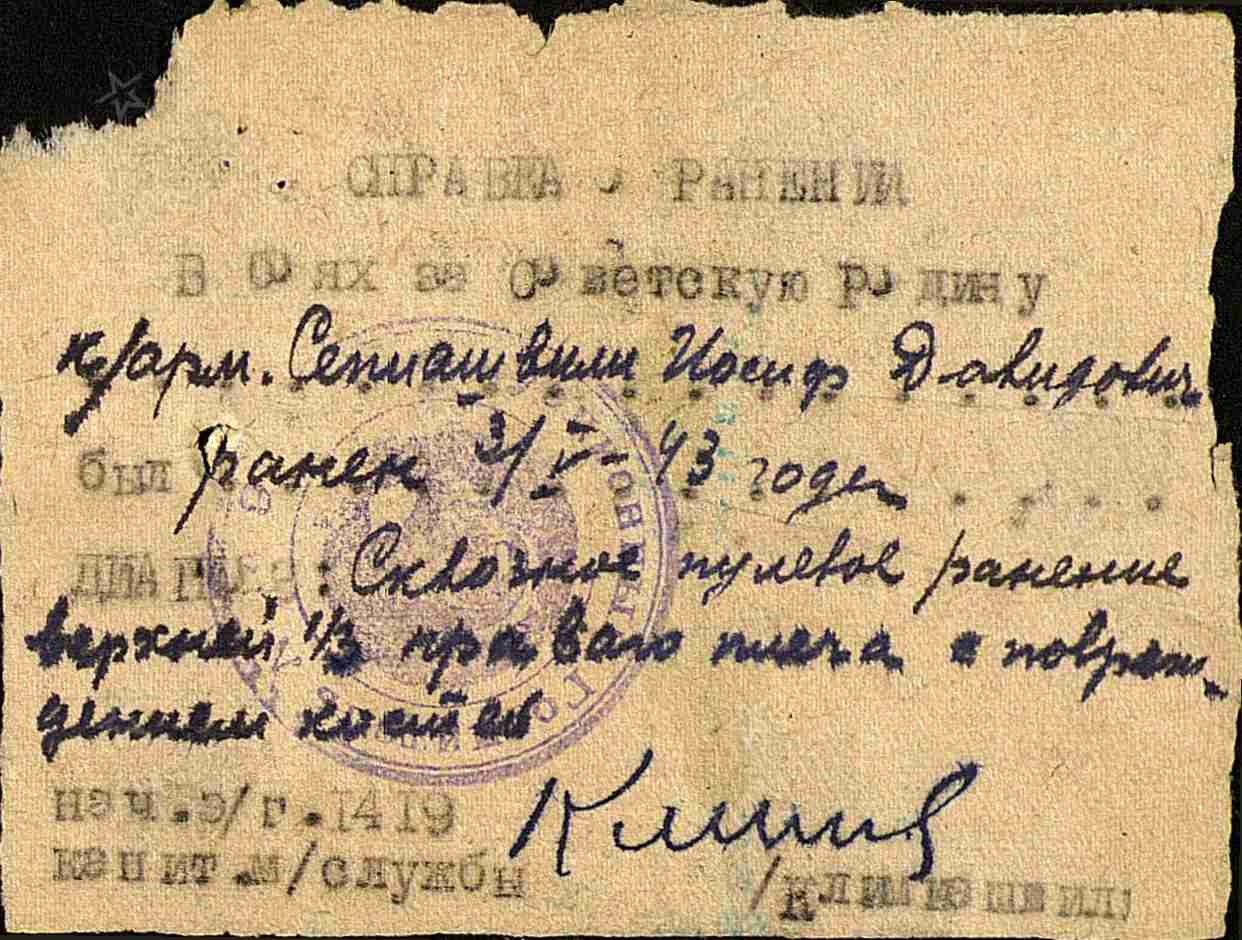 СПРАВКА о РАНЕНИИ
В боях за Советскую родину
к/арм. Сепиашвили Иосиф Давидович
был ранен 3/V-43 года
ДИАГНОЗ: Сквозное пулевое ранение
верхней 1/3 праваго плеча с повреж-
дением костей
нач.э/г.1419
капит.м/службы